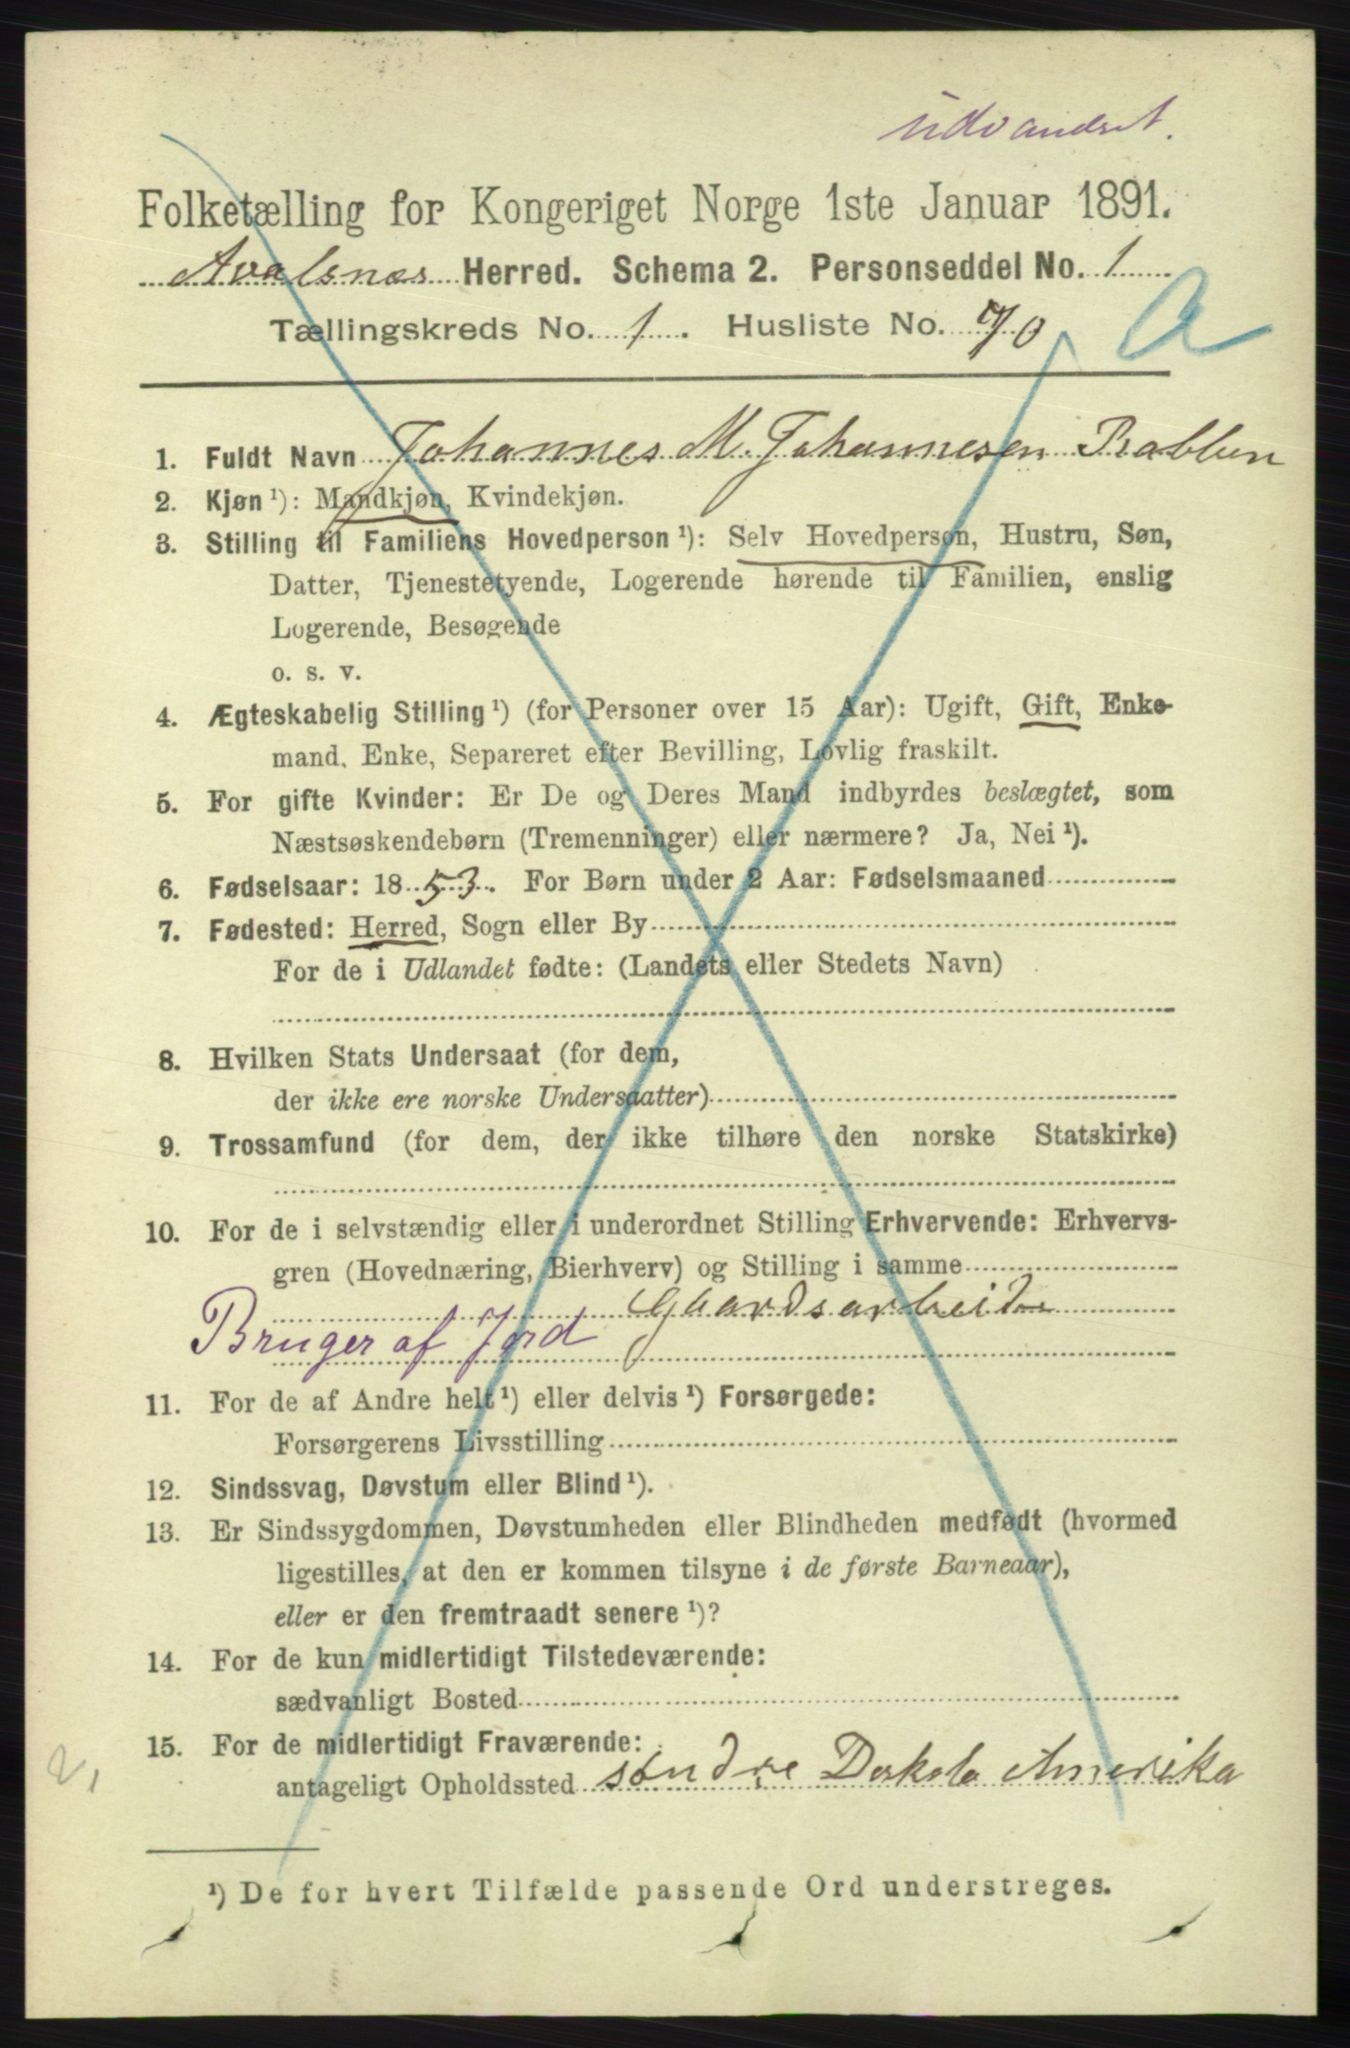 udvandret.
Folketælling for Kongeriget Norge 1ste Januar 1891.
Avalsnes Herred. Schema 2. Personseddel No. 1
Tællingskreds No. 1. Husliste No. 70
A
1. Fuldt Navn Johannes M. Johannesen
2. Kjøn ¹): Mandkjøn, Kvindekjøn.
3. Stilling til Familiens Hovedperson ¹): Selv Hovedperson, Hustru, Søn,
Datter, Tjenestetyende, Logerende hørende til Familien, enslig
Logerende, Besøgende
o. s. v.
4. Ægteskabelig Stilling ¹) (for Personer over 15 Aar): Ugift, Gift, Enke-
mand, Enke, Separeret efter Bevilling, Lovlig fraskilt.
5. For gifte Kvinder: Er De og Deres Mand indbyrdes beslægtet, som
Næstsøskendebørn (Tremenninger) eller nærmere? Ja, Nei ¹).
6. Fødselsaar: 1853. For Børn under 2 Aar: Fødselsmaaned
7. Fødested: Herred, Sogn eller By
For de i Udlandet fødte: (Landets eller Stedets Navn)
8. Hvilken Stats Undersaat (for dem,
der ikke ere norske Undersaatter)
9. Trossamfund (for dem, der ikke tilhøre den norske Statskirke)
10. For de i selvstændig eller i underordnet Stilling Erhvervende: Erhvervs-
gren (Hovednæring, Bierhverv) og Stilling i samme
Gaardsarbeide
Bruger af Jord
11. For de af Andre helt ¹) eller delvis ¹) Forsørgede:
Forsørgerens Livsstilling
12. Sindssvag, Døvstum eller Blind ¹).
13. Er Sindssygdommen, Døvstumheden eller Blindheden medfødt (hvormed
ligestilles, at den er kommen tilsyne i de første Barneaar),
eller er den fremtraadt senere ¹)?
14. For de kun midlertidigt Tilstedeværende:
sædvanligt Bosted
15. For de midlertidigt Fraværende:
antageligt Opholdssted søndre Dakota Amerika
2,
¹) De for hvert Tilfælde passende Ord understreges.